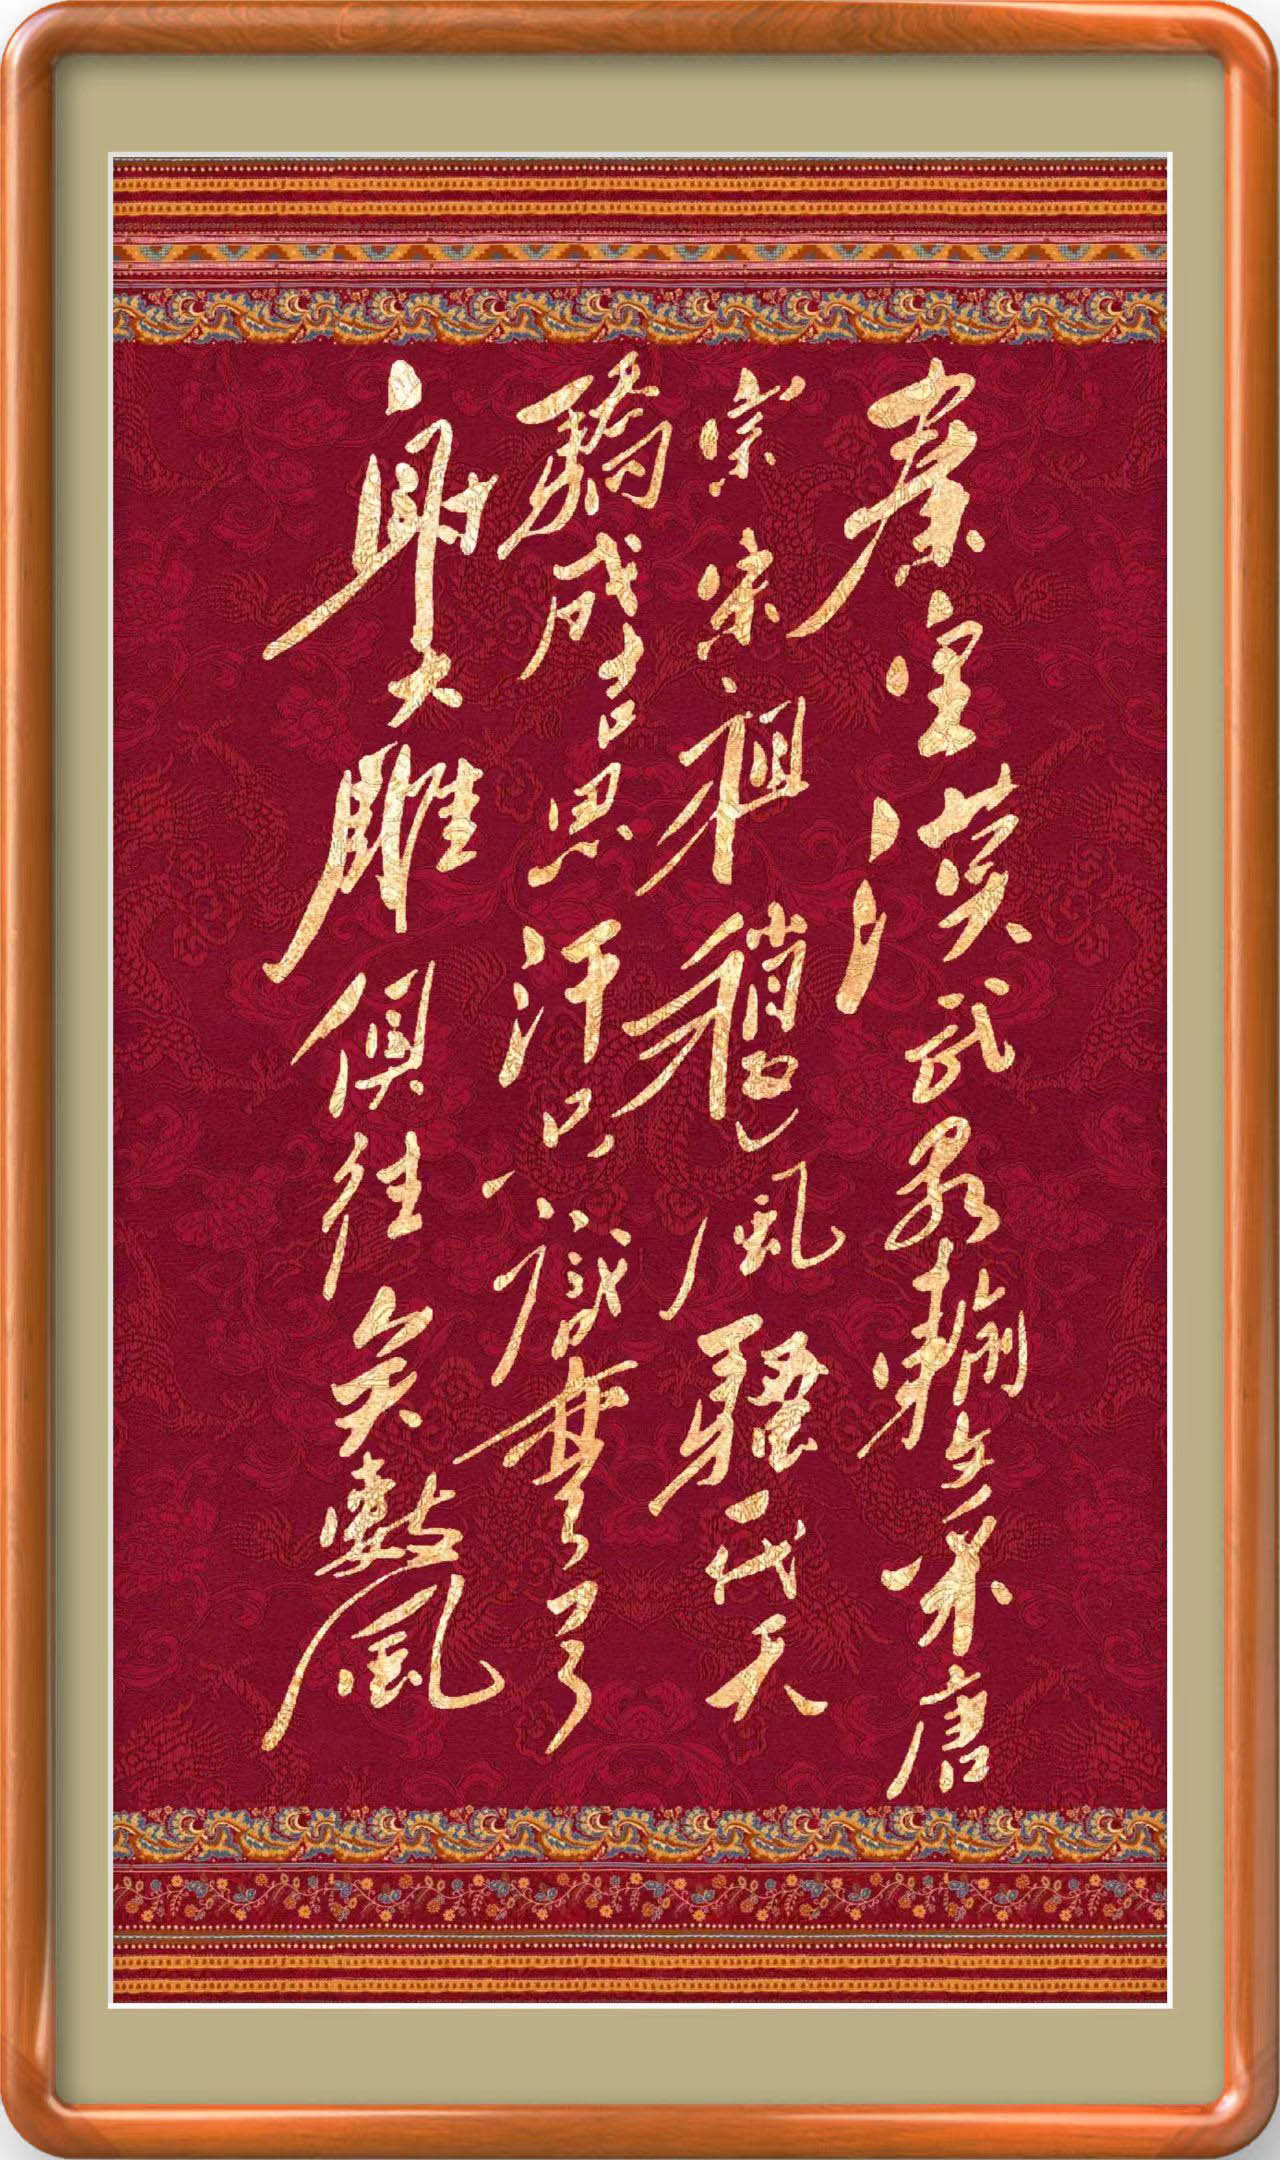 秦皇漢武畧輸文采唐
宗宋祖稍遜風騷一代天
驕成吉思汗只識彎弓
射大雕俱往矣數風